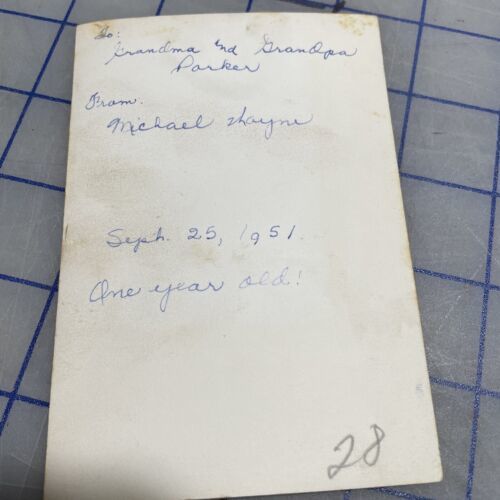 To:
Grandma and Grandpa
Parker
From.
Michael Wayne
Sept. 25, 1951.
One year old!
28